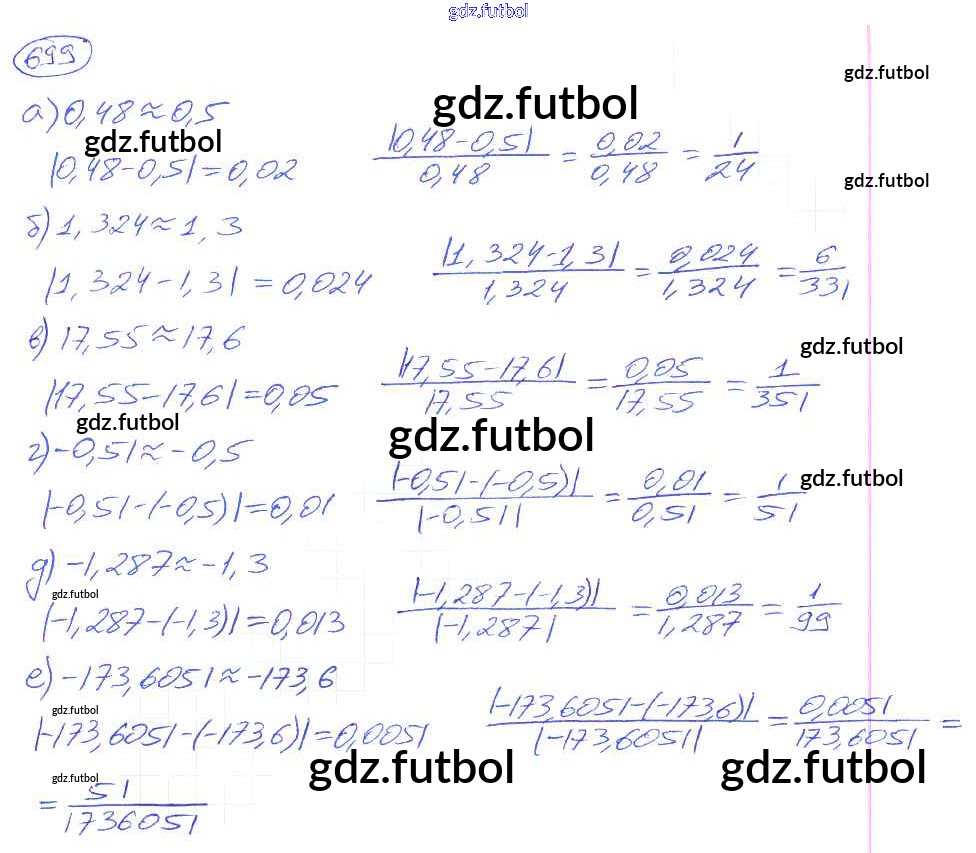 gdz.futbol
699
gdz.futbol
а) 0,48 ≈ 0,5
gdz.futbol
gdz.futbol
|0,48-0,5| = 0,02   |0,48-0,5|/0,48 = 0,02/0,48 = 1/24
gdz.futbol
б) 1,324 ≈ 1,3
|1,324-1,3| = 0,024   |1,324-1,3|/1,324 = 0,024/1,324 = 6/331
в) 17,55 ≈ 17,6
gdz.futbol
|17,55-17,6| = 0,05   |17,55-17,6|/17,55 = 0,05/17,55 = 1/351
gdz.futbol
gdz.futbol
г) -0,51 ≈ -0,5
gdz.futbol
|-0,51-(-0,5)| = 0,01   |-0,51-(-0,5)|/|-0,51| = 0,01/0,51 = 1/51
д) -1,287 ≈ -1,3
gdz.futbol
|-1,287-(-1,3)| = 0,013   |-1,287-(-1,3)|/|-1,287| = 0,013/1,287 = 1/99
е) -173,6051 ≈ -173,6
gdz.futbol
|-173,6051-(-173,6)| = 0,0051   |-173,6051-(-173,6)|/|-173,6051| = 0,0051/173,6051 =
gdz.futbol
gdz.futbol
gdz.futbol
= 51/1736051